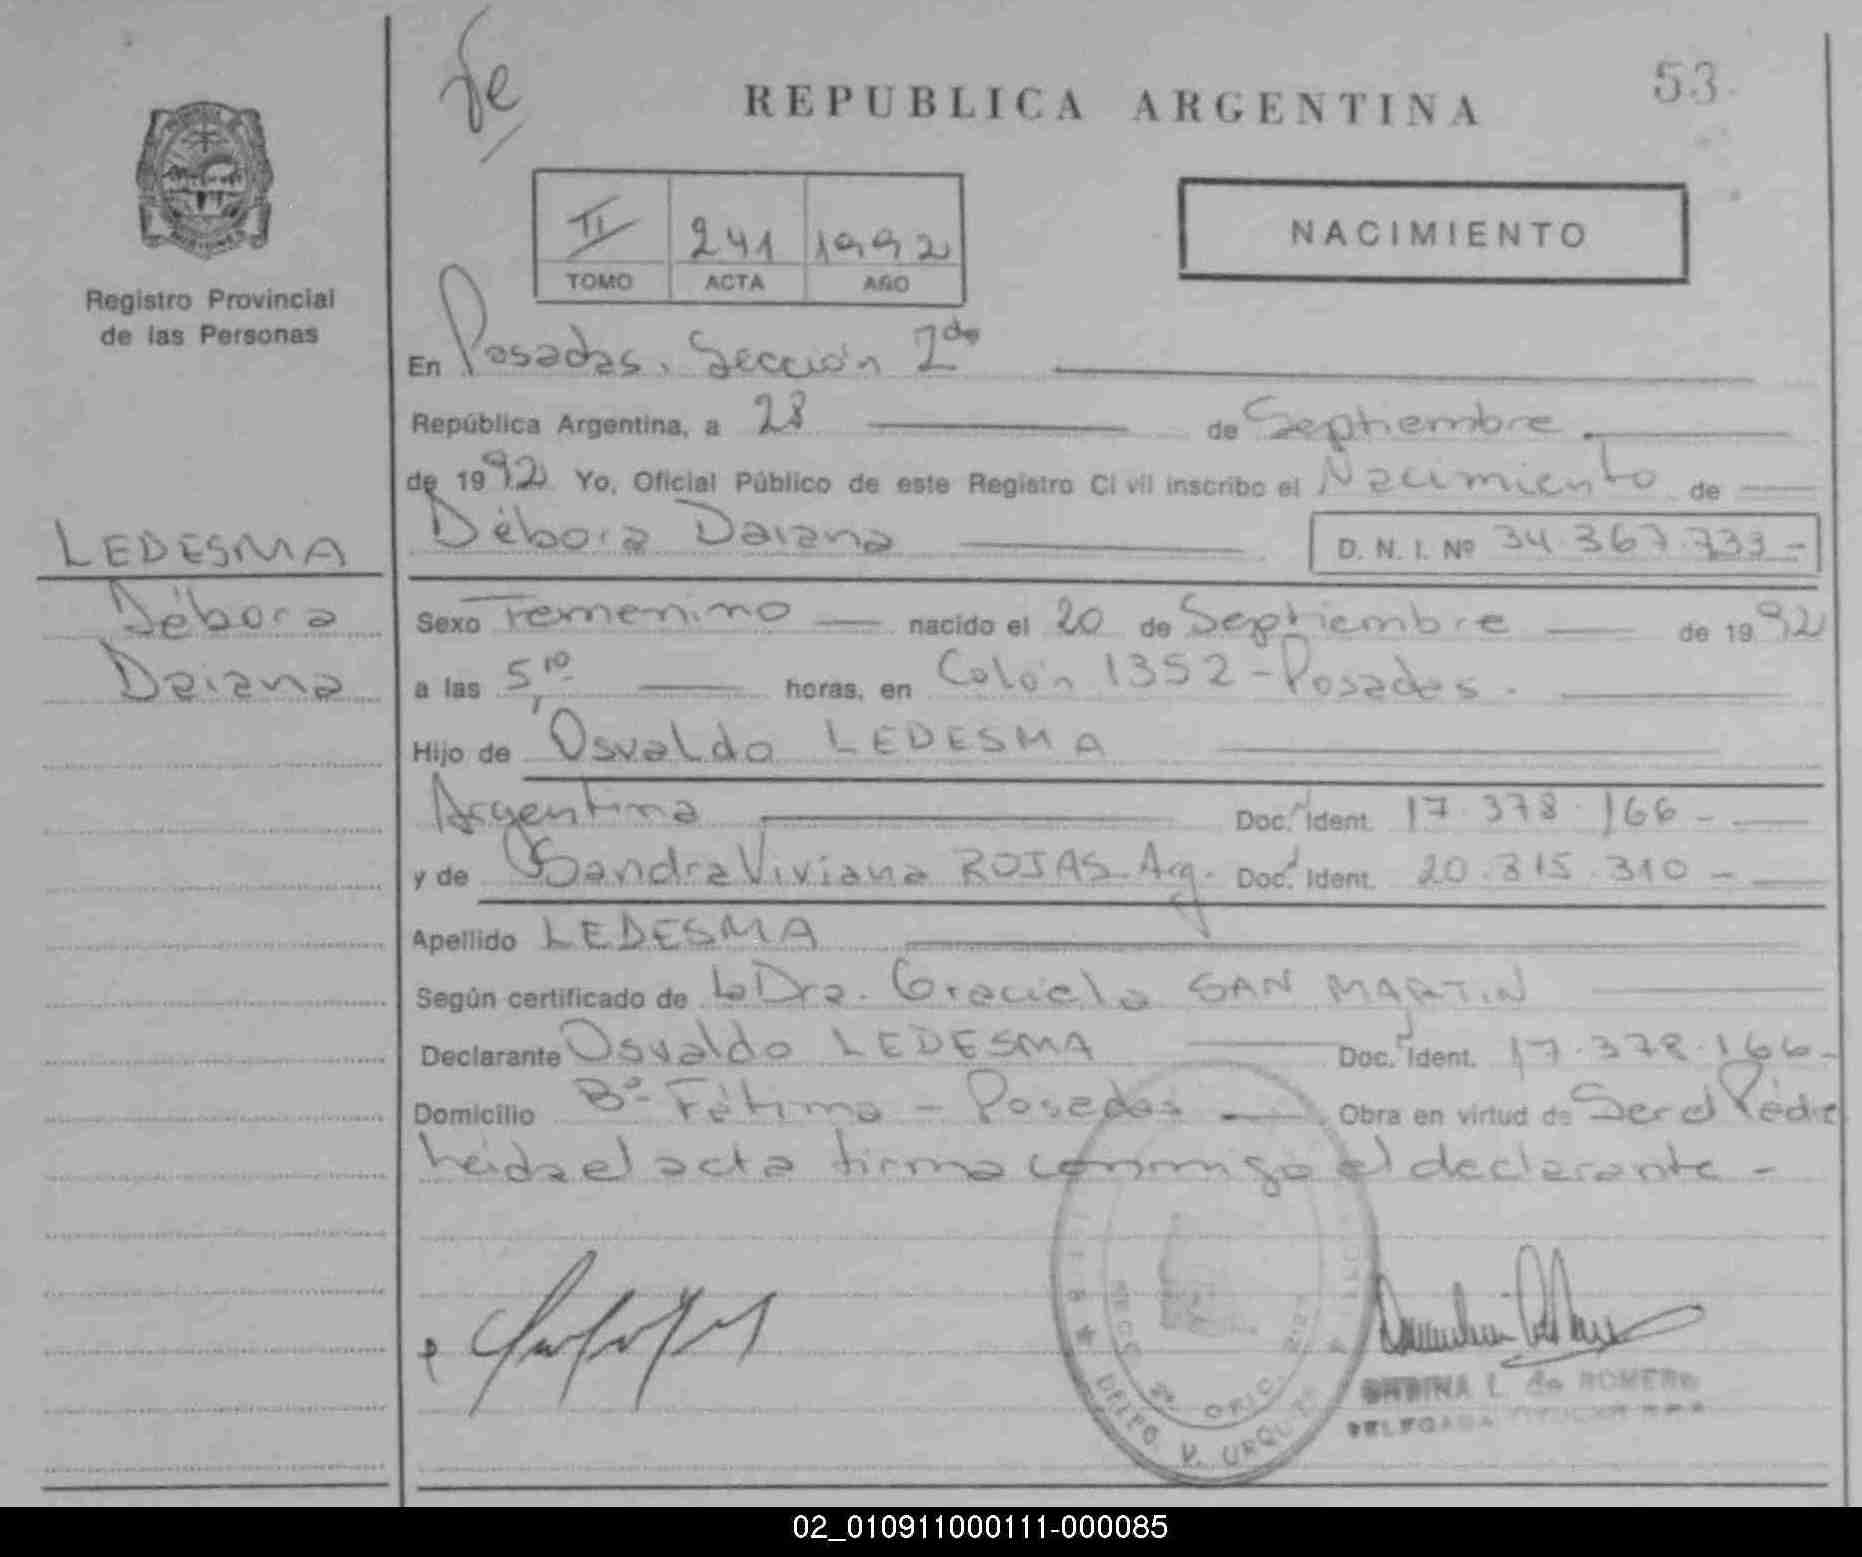 fe
53.
REPUBLICA ARGENTINA
Registro Provincial
de las Personas
II 241 1992
TOMO ACTA AÑO
NACIMIENTO
En Posadas, Sección 2da
República Argentina, a 28 de Septiembre
de 1992 Yo, Oficial Público de este Registro Civil inscribo el Nacimiento de
LEDESMA
Débora
Daiana
Débora Daiana D. N. I. Nº 34.367.733-
Sexo Femenino nacido el 20 de Septiembre de 1992
a las 5,10 horas, en Colón 1352 - Posadas.
Hijo de Osvaldo LEDESMA
Argentina Doc. Ident. 17.378.166-
y de Sandra Viviana ROJAS Arg. Doc. Ident. 20.315.310-
Apellido LEDESMA
Según certificado de la Dra. Graciela SAN MARTIN
Declarante Osvaldo LEDESMA Doc. Ident. 17.378.166-
Domicilio Bº Fátima - Posadas Obra en virtud de Ser el Padre
Leida el acta firma conmigo el declarante -
SECC 2ª OFIC.
DELEG. V. URQUIZA
L. de ROMERO
DELEGADA TITULAR R.P.P.
02_010911000111-000085